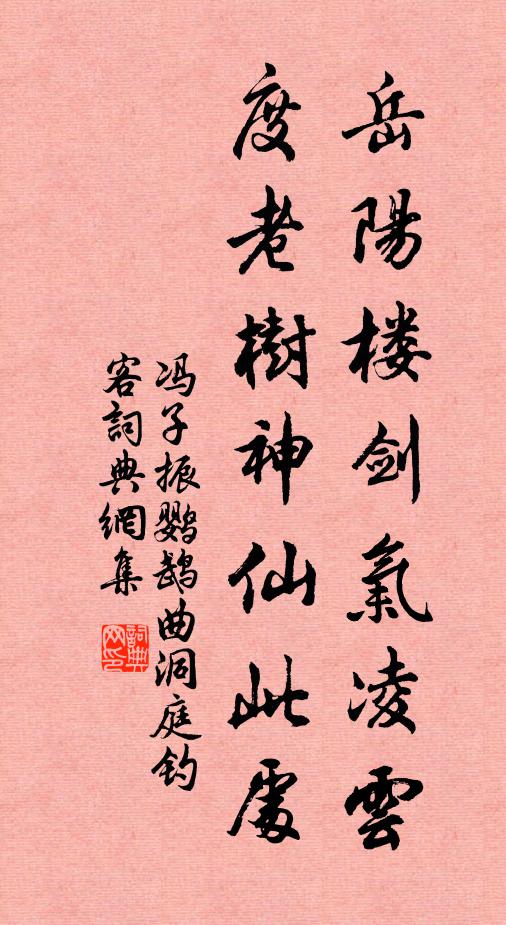 岳陽楼剑氣凌雲
度老樹神仙此處
冯子振鹦鹉曲洞庭钓
客詞典網集
詞典网印